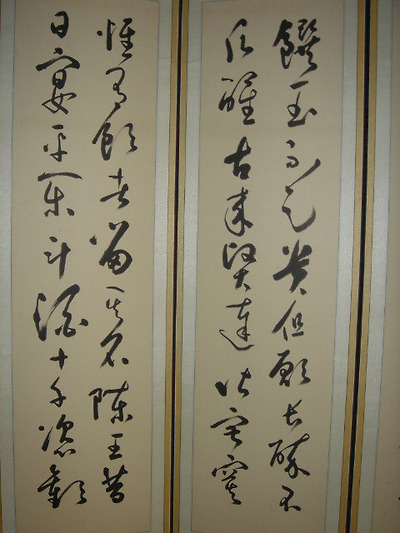 饌玉不足貴但願長醉不
復醒古來賢達皆寂寞
惟有飲者留其名陳王昔
日宴平樂斗酒十千恣歡